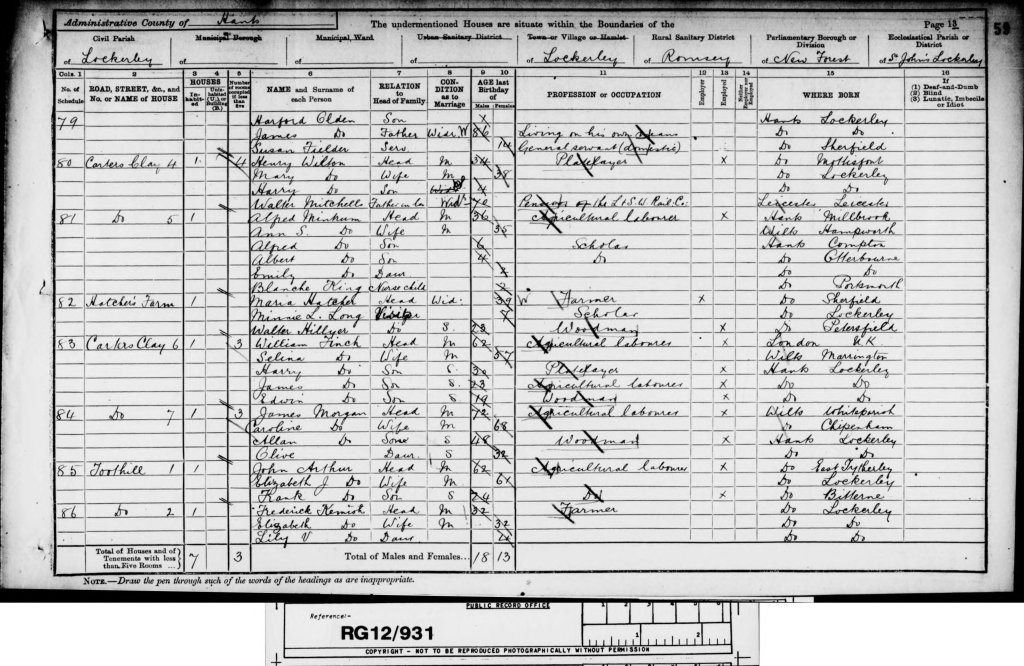 Administrative County of Hants The undermentioned Houses are situate within the Boundaries of the Page 13 59
Civil Parish Municipal Borough Municipal Ward Urban Sanitary District Town or Village or Hamlet Rural Sanitary District Parliamentary Borough or Division Ecclesiastical Parish or District
of Lockerley of of of of Lockerley of Romsey of New Forest of St John's Lockerley
Cols. 1 2 3 4 5 6 7 8 9 10 11 12 13 14 15 16
No. of Schedule ROAD, STREET, &c., and No. or NAME of HOUSE HOUSES Inhabited Uninhabited (U.), or Building (B.) Number of rooms occupied if less than five NAME and Surname of each Person RELATION to Head of Family CONDITION as to Marriage AGE last Birthday of Males Females PROFESSION or OCCUPATION Employer Employed Neither Employer nor Employed WHERE BORN If (1) Deaf-and-Dumb (2) Blind (3) Lunatic, Imbecile or Idiot
79 Harford Olden Son Hants Lockerley
James Do Father Widr. W 86 Living on his own means Do Do
Susan Fielder Serv. 14 General servant (domestic) Do Sherfield
80 Carters Clay 4 1 4 Henry Wilton Head M 34 Platelayer x Do Mottisfont
Mary Do Wife M 38 Do Lockerley
Harry Do Son 4 Do Do
Walter Mitchell Father in law Widr 70 Pensioner of the L & S.W. Rail. Co. Leicester Leicester
81 Do 5 1 Alfred Minhum Head M 36 Agricultural labourer x Hants Millbrook
Ann S. Do Wife M 35 Wilts Hampworth
Alfred Do Son 6 Scholar Hants Compton
Albert Do Son 4 Do Do Otterbourne
Emily Do Daur. Do Do
Blanche King Nurse child Do
82 Hatcher's Farm 1 Maria Hatcher Head Wid: 39 W Farmer x Do Sherfield
Minnie L. Long Visitor 7 Scholar Do Lockerley
Walter Hillyer Do S. 73 Woodman x Do Petersfield
83 Carters Clay 6 1 3 William Finch Head M 62 Agricultural labourer x London U.K.
Selina Do Wife M 57 Wilts Marrington
Harry Do Son S 30 Platelayer x Hants Lockerley
James Do Son S. 23 Agricultural labourer x Do Do
Edwin Do Son S 19 Woodman x Do Do
84 Do 7 1 3 James Morgan Head M 72 Agricultural labourer x Wilts Whiteparish
Caroline Do Wife M 68 Do Chipenham
Allan Do Son S 48 Woodman x Hants Lockerley
Clive Daur. S 32 Do Lockerley
85 Toothill 1 1 John Arthur Head M 62 Agricultural labourer x Do East Tytherley
Elizabeth J Do Wife M 61 Do Lockerley
Frank Do Son S 24 Do x Do Bitterne
86 Do 2 1 Frederick Kemish Head M 32 Farmer Do Lockerley
Elizabeth Do Wife M 32 Do Do
Lily V Do Daur 4 Do Do
Total of Houses and of Tenements with less than Five Rooms ... 7 3 Total of Males and Females... 18 13
NOTE.—Draw the pen through such of the words of the headings as are inappropriate.
PUBLIC RECORD OFFICE
Reference:-
RG12/931
1 2
COPYRIGHT - NOT TO BE REPRODUCED PHOTOGRAPHICALLY WITHOUT PERMISSION